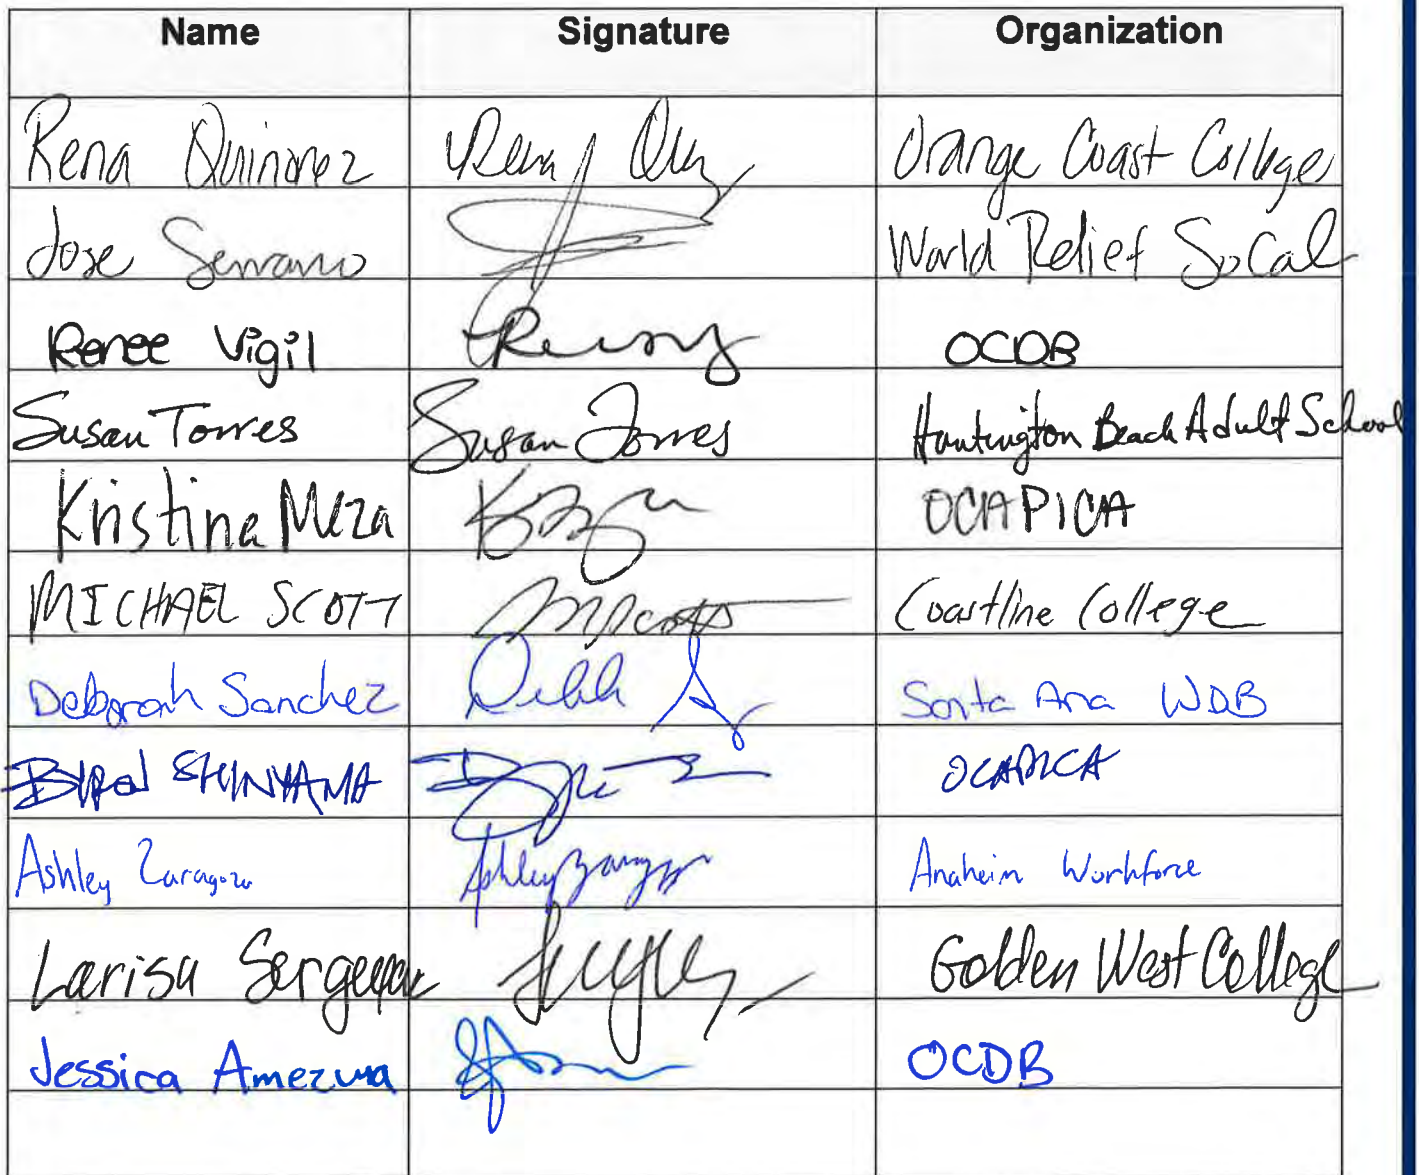 Name Signature Organization
Rena Quinonez Orange Coast College
Jose Serrano World Relief SoCal
Renee Vigil OCDB
Susan Torres Susan Torres Huntington Beach Adult School
Kristina Meza OCAPICA
MICHAEL SCOTT MScott Coastline College
Deborah Sanchez Santa Ana WDB
SHINYAMA OCAPICA
Ashley Zaragoza Ashley Zaragoza Anaheim Workforce
Larisa Golden West College
Jessica Amezcua OCDB